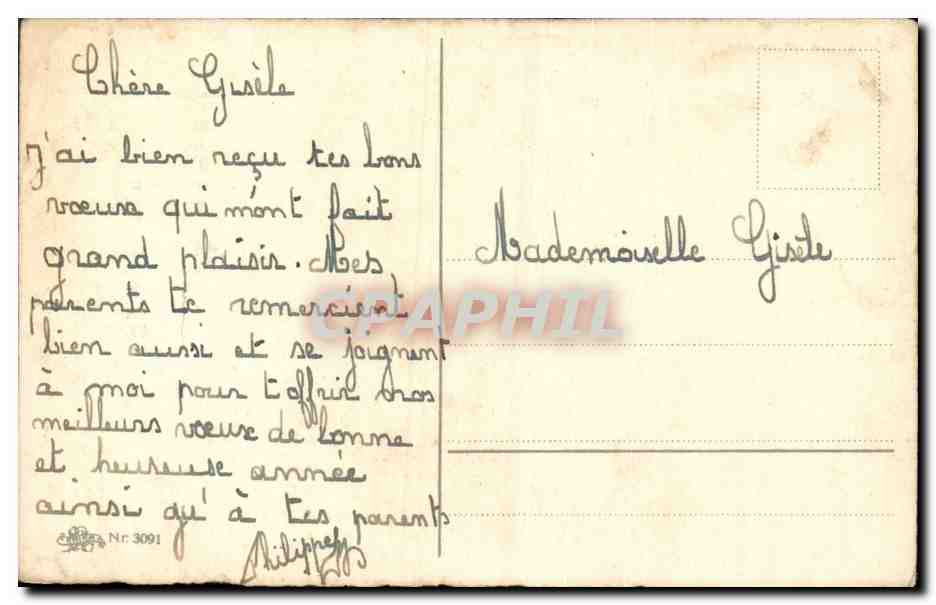 Chère Gisèle
J'ai bien reçu tes bons
vœux qui m'ont fait
grand plaisir. Mes
parents te remercient
bien aussi et se joignent
à moi pour t'offrir nos
meilleurs vœux de bonne
et heureuse année
ainsi qu'à tes parents
Philippe
Nr. 3091
Mademoiselle Gisèle
CPAPHIL